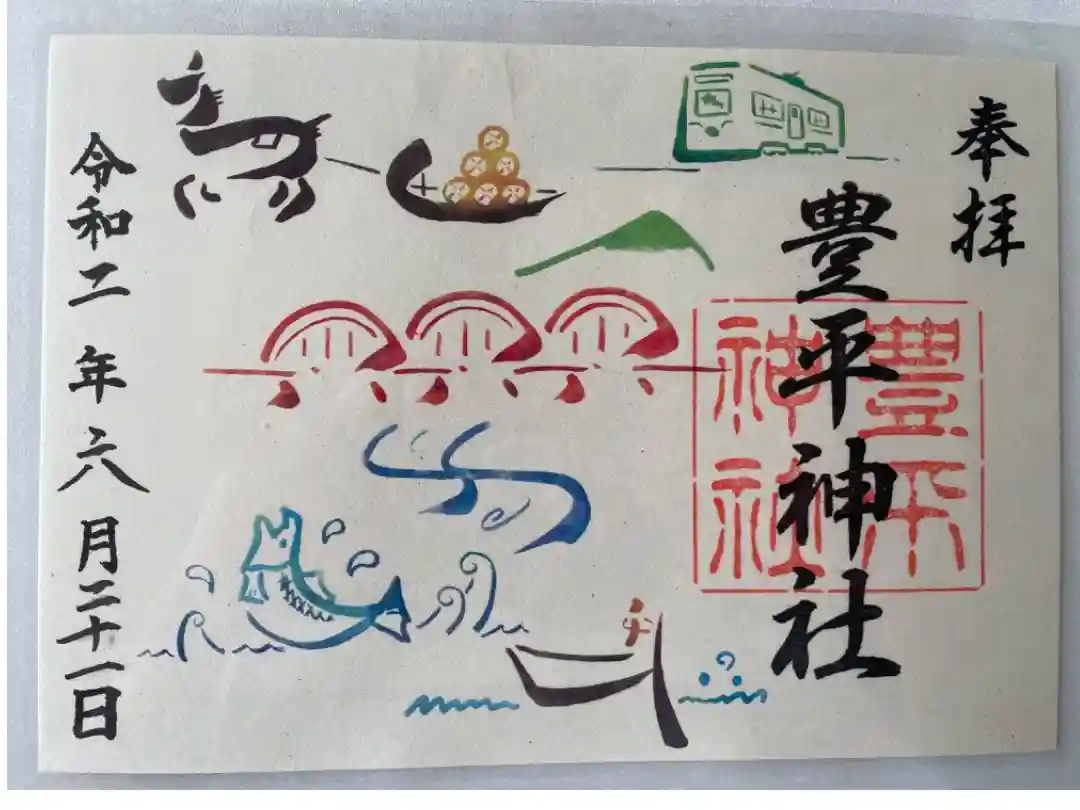 奉拝
豊平神社
豊平
神社
令和二年六月二十一日